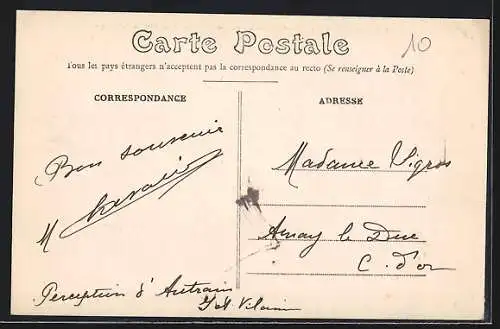 Carte Postale
10
Tous les pays étrangers n'acceptent pas la correspondance au recto (Se renseigner à la Poste)
CORRESPONDANCE
ADRESSE
Bon souvenir
M Chevalier
Madame Vigros
Arnay le Duc
C. d'or
Perception d'Antrain
I et Vilaine